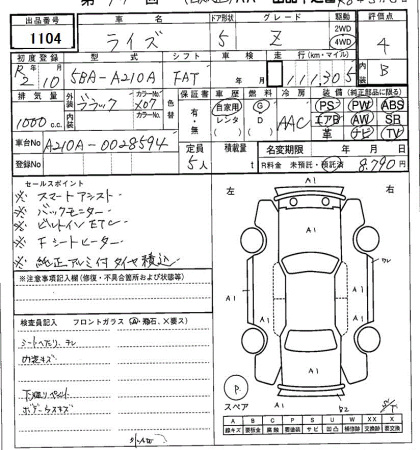 出品番号 車名 ドア形状 グレード 駆動 評価点
1104 ライズ 5 Z 2WD 4WD 4
初度登録 型式 シフト 車検 走行(km・マイル) 内装
R2 10 5BA-A210A FAT 年 月 111,305 B
排気量 外装 カラーNo. 色替 保証書 車歴 燃料 冷房 装備(純正部品に限る)
1000 c.c. ブラック X07 有・無 自家用 レンタ G D AAC PS PW ABS
エアB AW SR
革 ナビ TV
車台No A210A-0028594
登録No
定員 5人 積載量 t 名変期限 年 月 日
R料金 未預託・預託済 8,790円
セールスポイント
※ スマートアシスト
※ バックモニター
※ ビルトインETC
※ Fシートヒーター
※ 純正アルミ付タイヤ積込
※注意事項記入欄(修復・不具合箇所および状態等)
検査員記入 フロントガラス(A・飛石、X要ス)
内装キズ
左 右
A1 A1 A1 A1 A1 A1
P
スペア
A B C P S U W X XX X
線キズ 要板金 腐食 要塗装 サビ 凹凸 補修跡 要交換 交換済 要交換